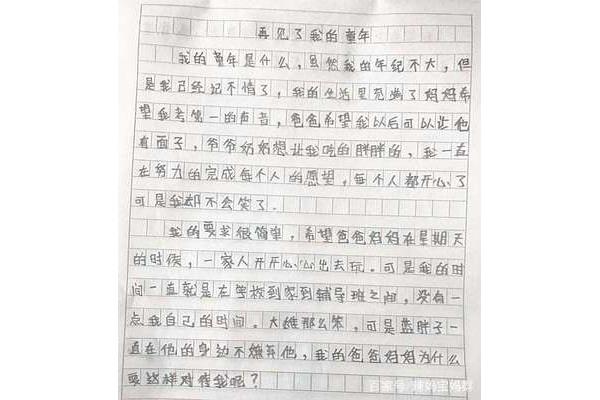 再见了我的童年
我的童年是什么,虽然我的年纪不大,但
是我已经记不清了,我的生活里充满了妈妈希
望我考第一的声音,爸爸希望我以后可以让他
有面子,爷爷奶奶想让我吃的胖胖的,我一直
在努力的完成每个人的愿望,每个人都开心了
可是我却不会笑了.
我的要求很简单,希望爸爸妈妈在星期天
的时候,一家人开开心心出去玩。可是我的时
间一直就是在学校到家到辅导班之间,没有一
点我自己的时间。大雄那么笨,可是蓝胖子一
直在他的身边不嫌弃他,我的爸爸妈妈为什么
要这样对待我呢?
百家号